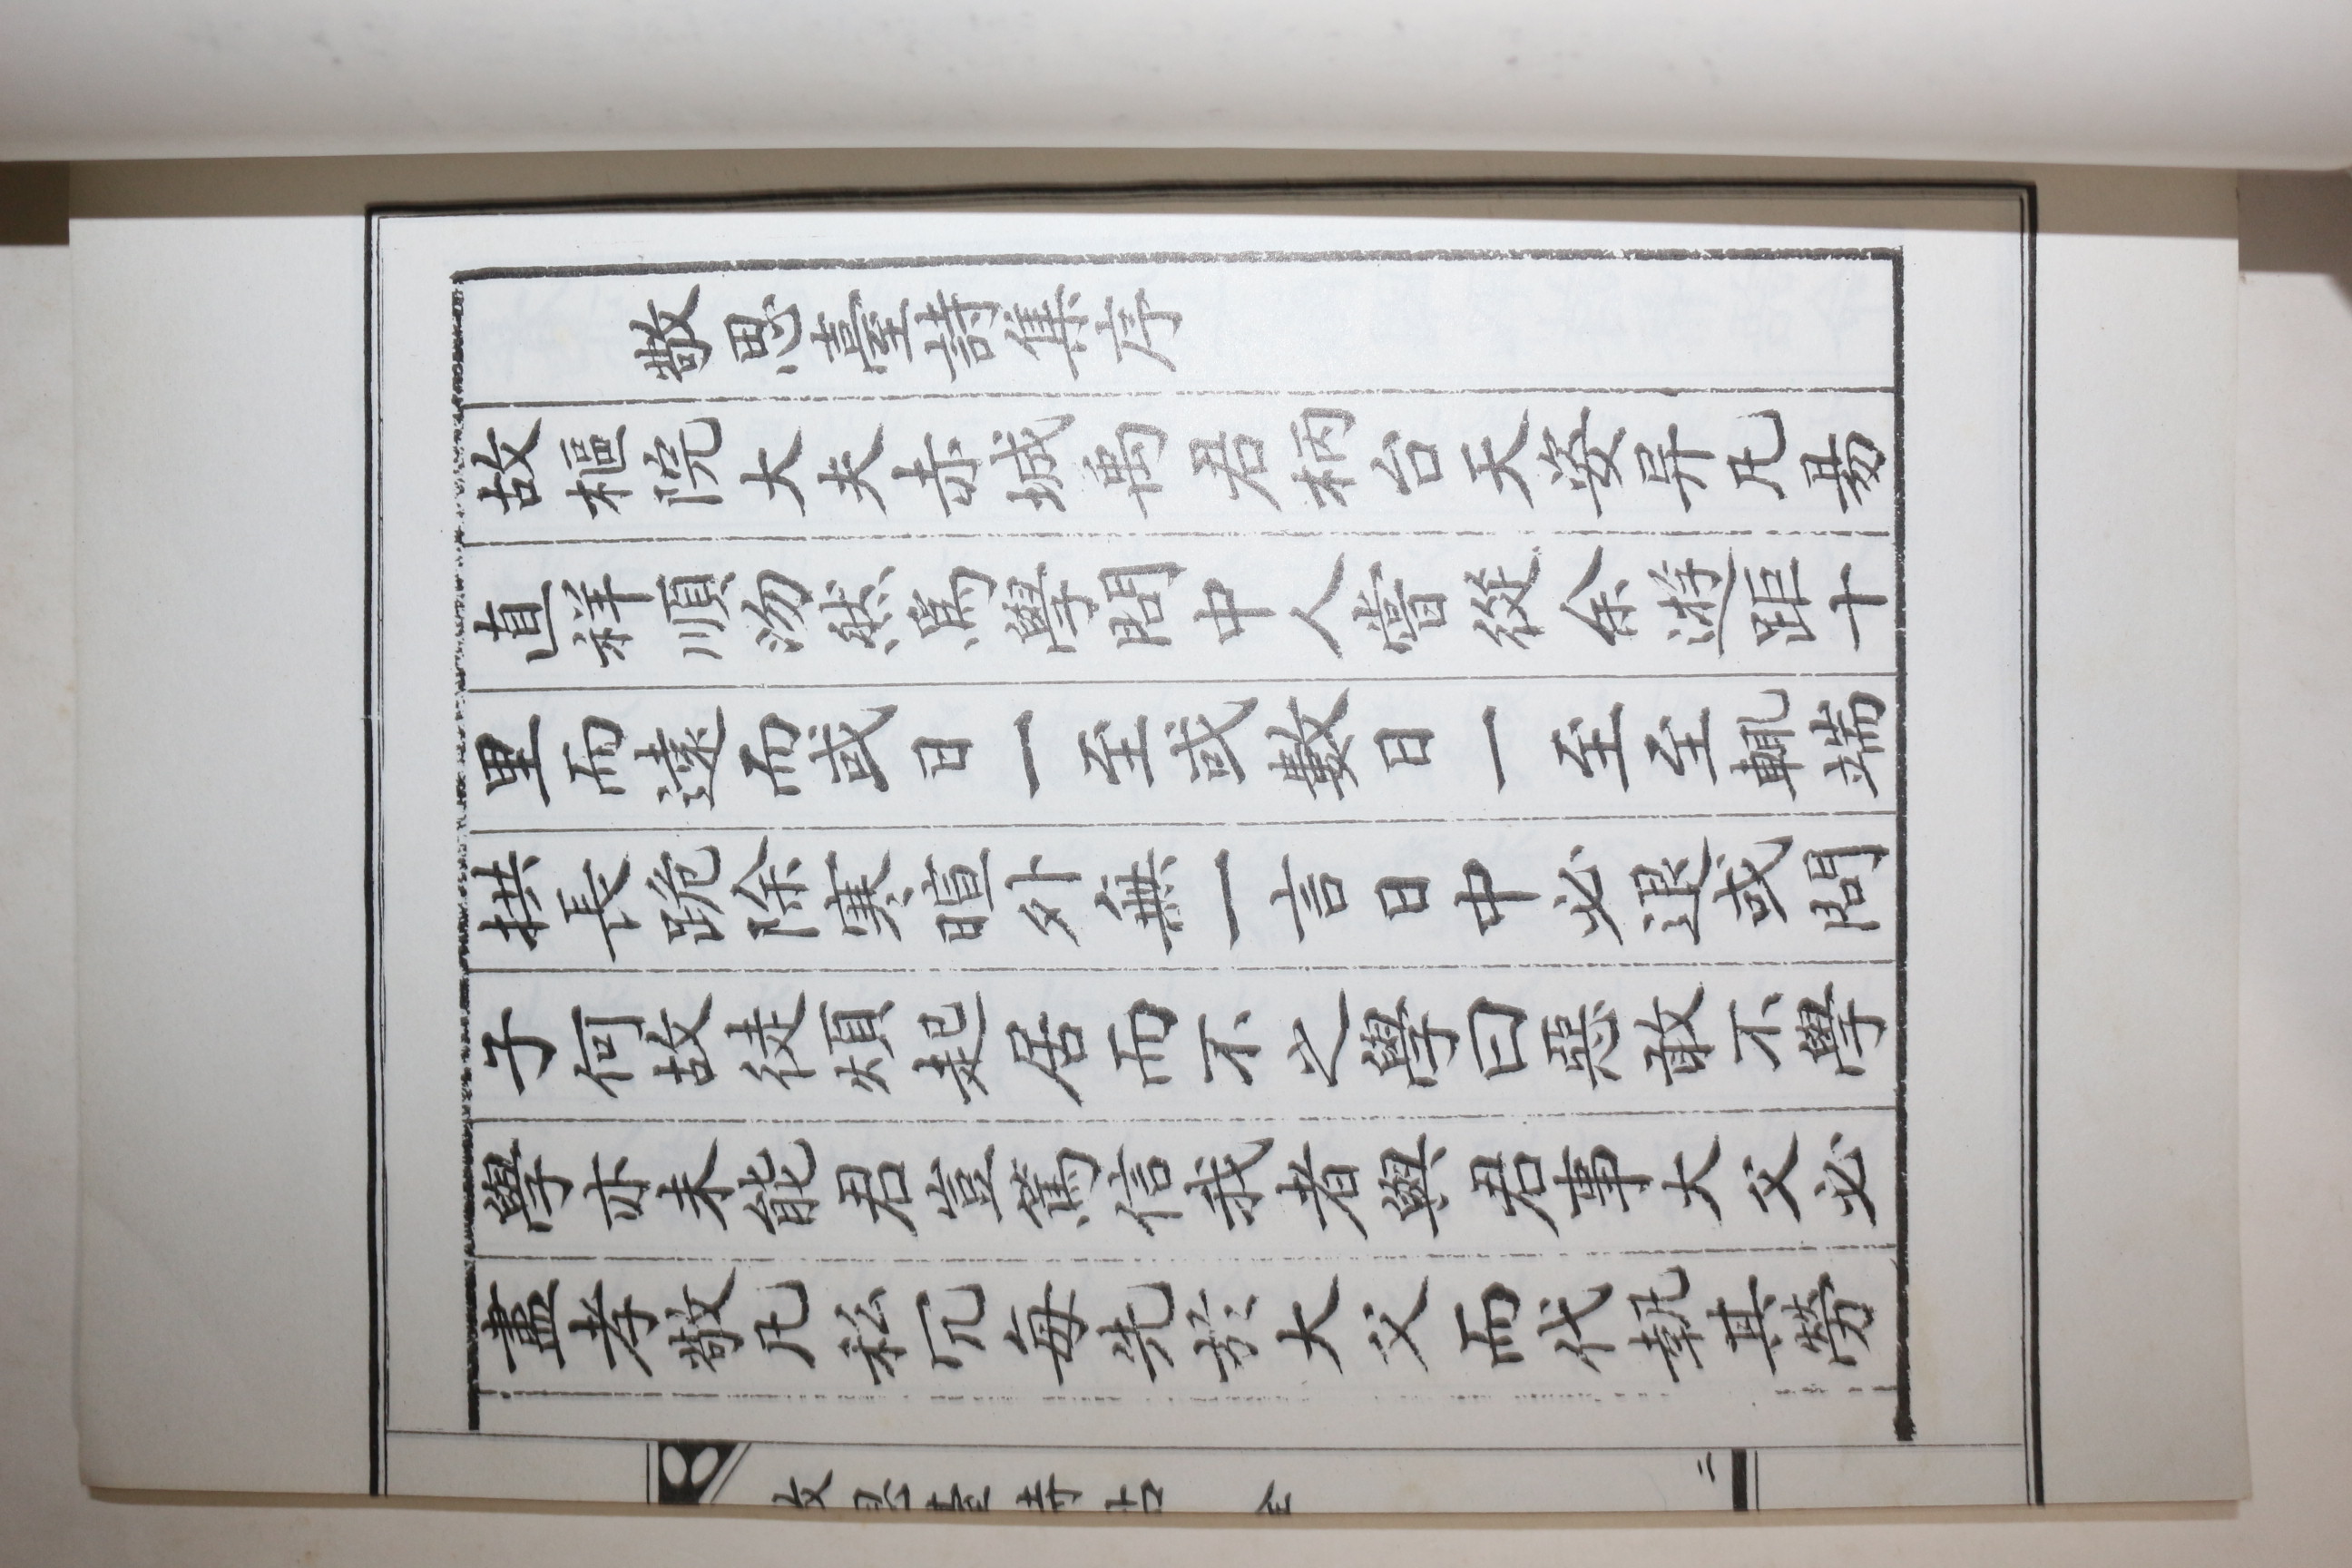 敬思臺詩集序
故樞院大夫赤城禹君柄台天姿异凡昜
直祥順沕然爲學問中人嘗從余遊距十
里而遠而或日一至或數日一至至輒端
拱長跪除寒暄外無一言日中必退或問
子何故徒煩起居而不之學曰惡敢不學
學亦未能君豈篤信我者與君事大父必
盡孝敬凡私冗每先於大父而代執其勞
二